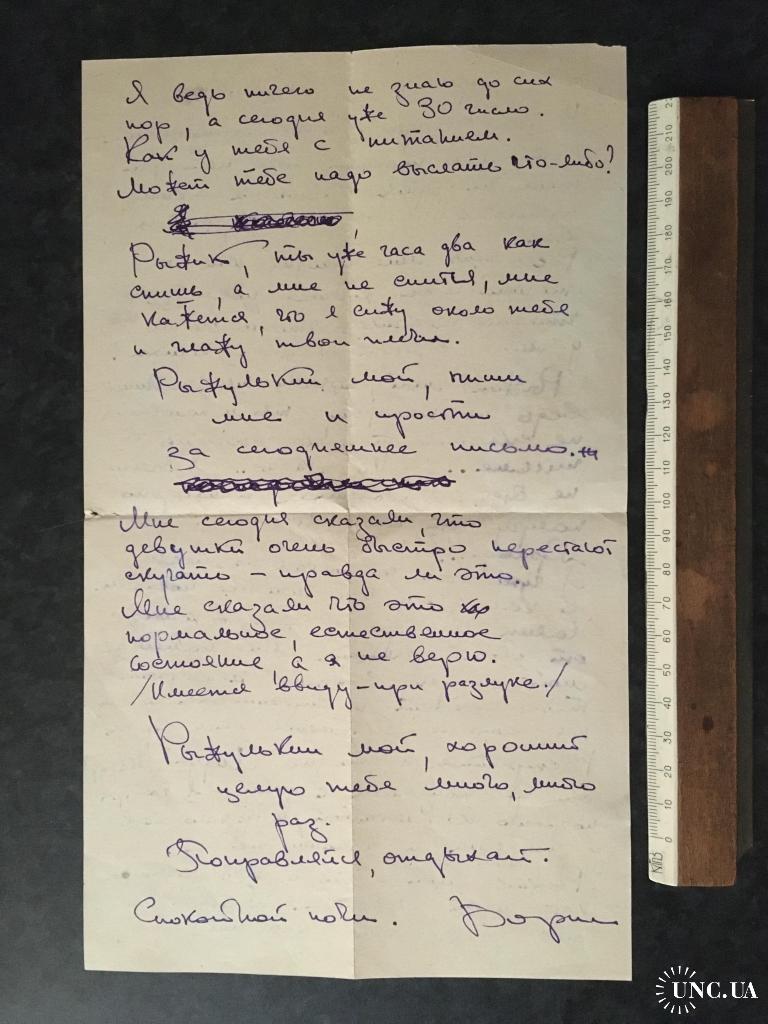 Я ведь ничего не знаю до сих
пор, а сегодня уже 30 число.
Как у тебя с питанием.
Может тебе надо выслать что-либо?
Рыжик, ты уже часа два как
спишь, а мне не спится, мне
кажется, что я сижу около тебя
и глажу твои плечи.
Рыжулькин мой, пиши
мне и прости
за сегодняшнее письмо.
Мне сегодня сказали, что
девушки очень быстро перестают
скучать – правда ли это.
Мне сказали что это
нормальное, естественное
состояние, а я не верю.
/Имеется ввиду – при разлуке./
Рыжулькин мой, хороший
целую тебя много, много
раз.
Поправляйся, отдыхай.
Спокойной ночи. Борис
0 10 20 30 40 50 60 70 80 90 100 110 120 130 140 150 160 170 180 190 200 210
UNC.UA